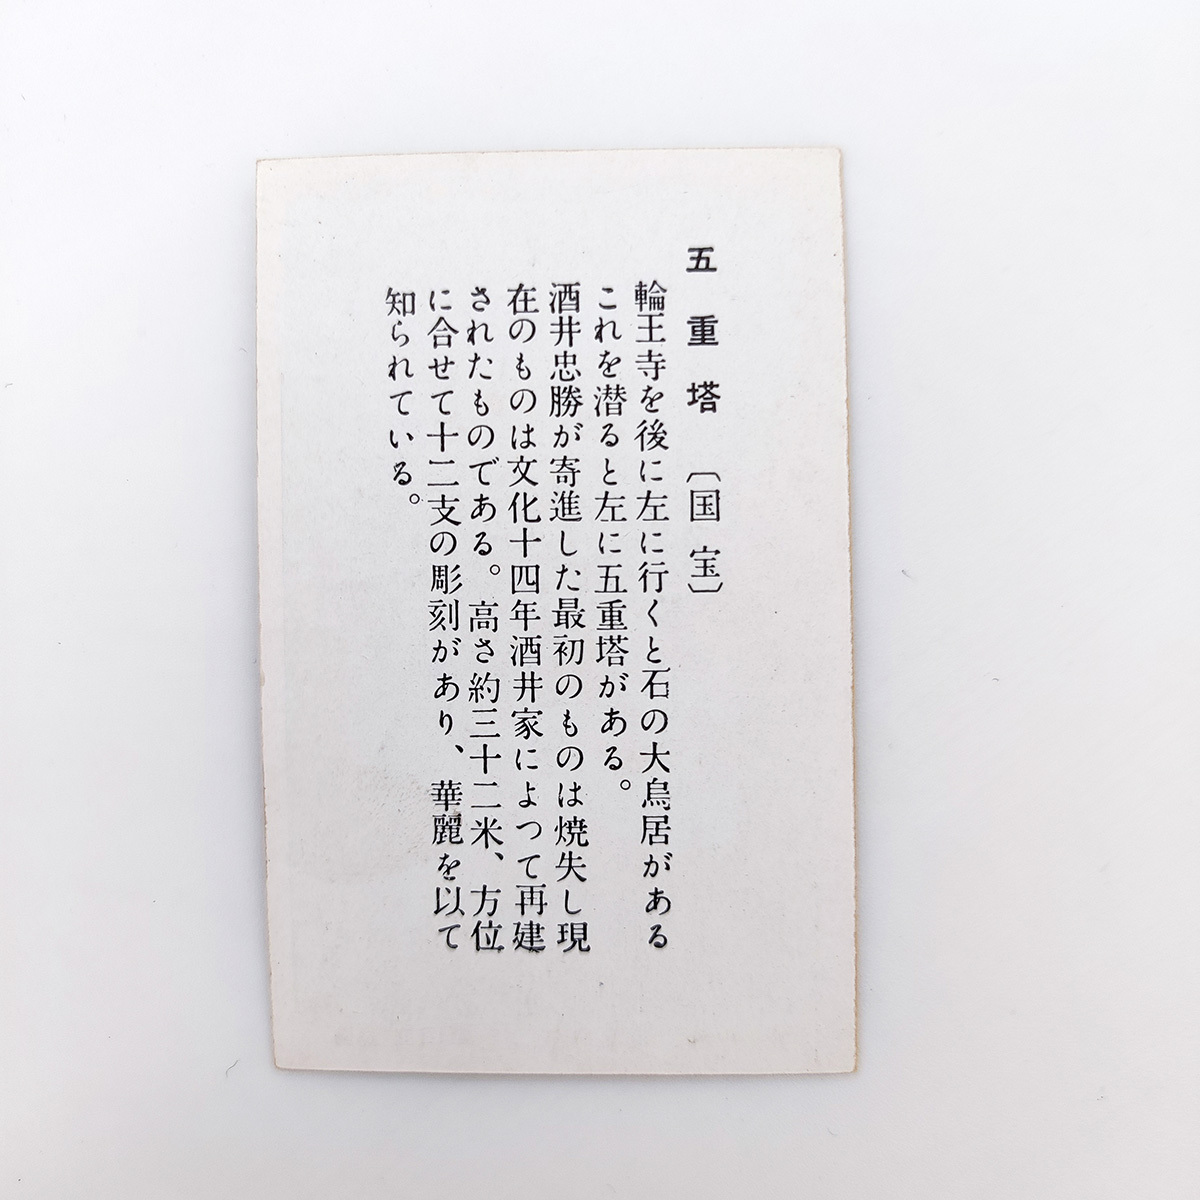 五重塔〔国宝〕
輪王寺を後に左に行くと石の大鳥居がある
これを潜ると左に五重塔がある。
酒井忠勝が寄進した最初のものは焼失し現
在のものは文化十四年酒井家によつて再建
されたものである。高さ約三十二米、方位
に合せて十二支の彫刻があり、華麗を以て
知られている。